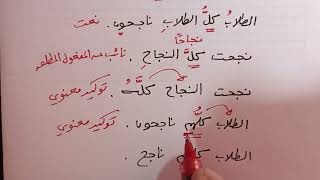 الطلابُ كلُّ الطلابِ ناجحون. نعت
نجاحًا
نجحت كلَّ النجاحِ. نائب عن المفعول المطلق
نجحت النجاحَ كلَّه. توكيد معنوي
الطلابُ كلُّهم ناجحون. توكيد معنوي
الطلاب ناجح.